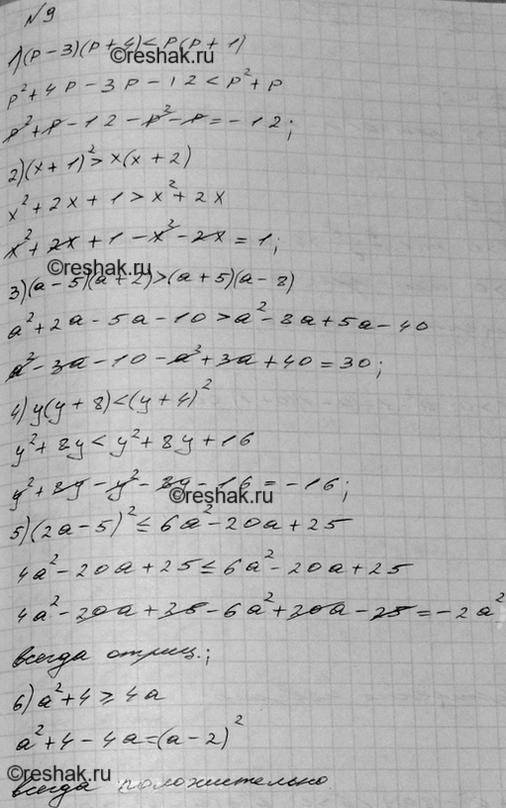 №9
1) (p-3)(p+4)<p(p+1)
p²+4p-3p-12<p²+p
p²+p-12-p²-p=-12;
2) (x+1)²>x(x+2)
x²+2x+1>x²+2x
x²+2x+1-x²-2x=1;
©reshak.ru
3) (a-5)(a+2)>(a+5)(a-8)
a²+2a-5a-10>a²-8a+5a-40
a²-3a-10-a²+3a+40=30;
4) y(y+8)<(y+4)²
y²+8y<y²+8y+16
y²+8y-y²-8y-16=-16;
©reshak.ru
5) (2a-5)²≤6a²-20a+25
4a²-20a+25≤6a²-20a+25
4a²-20a+25-6a²+20a-25=-2a²
всегда отриц.;
6) a²+4≥4a
a²+4-4a=(a-2)²
©reshak.ru
всегда положительно.
©reshak.ru